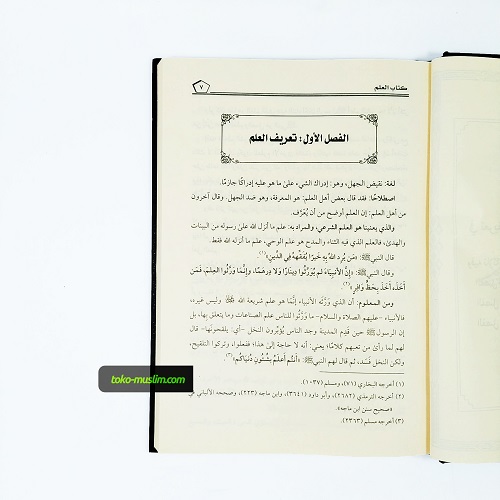 كتاب العلم
٧
الفصل الأول: تعريف العلم
لغة: نقيض الجهل، وهو: إدراك الشيء على ما هو عليه إدراكًا جازمًا.
اصطلاحًا: فقد قال بعض أهل العلم: هو المعرفة، وهو ضد الجهل. وقال آخرون
من أهل العلم: إن العلم أوضح من أن يُعَرَّف.
والذي يعنينا هو العلم الشرعي، والمراد به: علم ما أنزل الله على رسوله من البينات
والهدى، فالعلم الذي فيه الثناء والمدح هو علم الوحي، علم ما أنزله الله فقط.
قال النبي ﷺ: «مَن يُرِد اللهُ بِهِ خَيرًا يُفَقِّههُ فِي الدِّينِ»(١).
وقال النبي ﷺ: «إنَّ الأنبيَاءَ لَم يُوَرِّثُوا دِينَارًا وَلَا دِرهَمًا، وإنَّمَا وَرَّثُوا العِلمَ، فَمَن
أَخَذَهُ أَخَذَ بِحَظٍّ وَافِرٍ»(٢).
ومن المعلوم: أن الذي وَرَّثه الأنبياء إنَّمَا هو علم شريعة الله ﷻ وليس غيره،
فالأنبياء -عليهم الصلاة والسلام- ما وَرَّثوا للناس علم الصناعات وما يتعلق بها، بل
إن الرسول ﷺ حين قَدِمَ المدينة وجد الناس يُؤَبِّرون النخل -أي: يلقحونها- قال
لهم لما رأى من تعبهم كلامًا؛ يعني: أنه لا حاجة إلى هذا؛ ففعلوا، وتركوا التلقيح،
ولكن النخل فَسَد، ثم قال لهم النبي ﷺ: «أَنتُم أَعلَمُ بِشُئُونِ دُنيَاكُم»(٣).
(١) أخرجه البخاري (٧١)، ومسلم (١٠٣٧).
(٢) أخرجه الترمذي (٢٦٨٢)، وأبو داود (٣٦٤١)، وابن ماجه (٢٢٣)، وصححه الألباني في
«صحيح سنن ابن ماجه».
(٣) أخرجه مسلم (٢٣٦٣).
toko-muslim.com